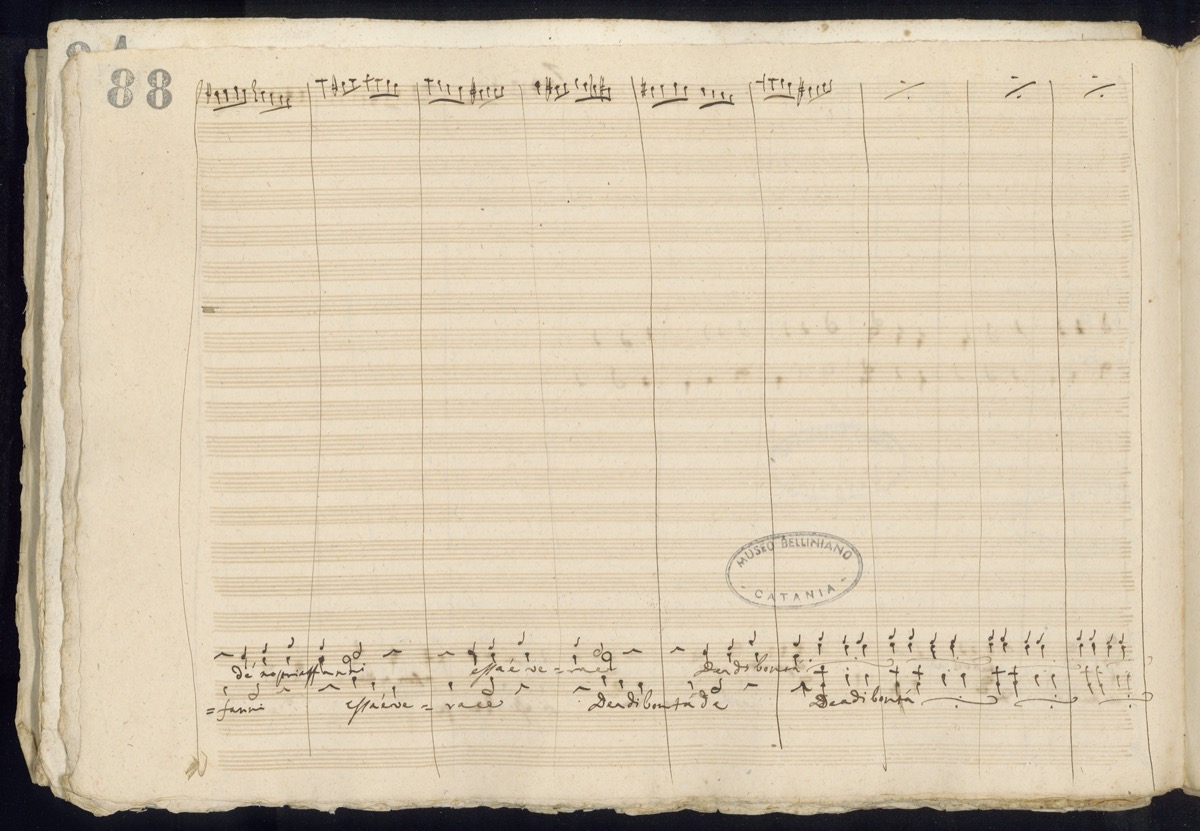 88
MUSEO BELLINIANO
CATANIA
de nostri affanni essa è ve = race Dea di bontà
= fanni essa è ve = race Dea di bontà de Dea di bontà